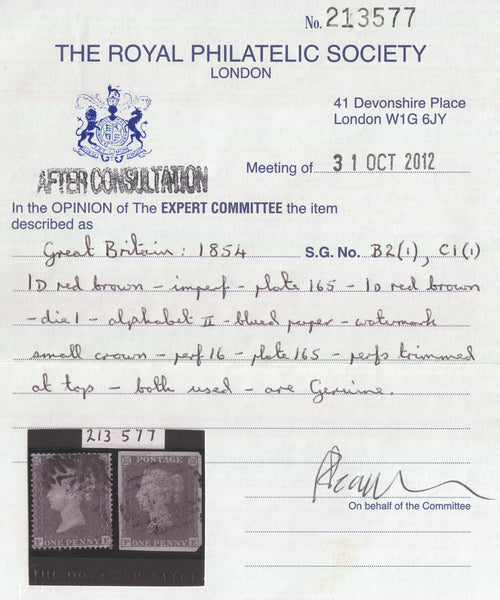 No. 213577
THE ROYAL PHILATELIC SOCIETY
LONDON
41 Devonshire Place
London W1G 6JY
AFTER CONSULTATION
Meeting of 31 OCT 2012
In the OPINION of The EXPERT COMMITTEE the item
described as
Great Britain: 1854 S.G. No. B2(i), C1(i)
1D red brown - imperf - plate 165 - 1D red brown
- die 1 - alphabet II - blued paper - watermark
small crown - perf 16 - plate 165 - perfs trimmed
at top - both used - are Genuine.
213 577
POSTAGE
ONE PENNY
ONE PENNY
On behalf of the Committee